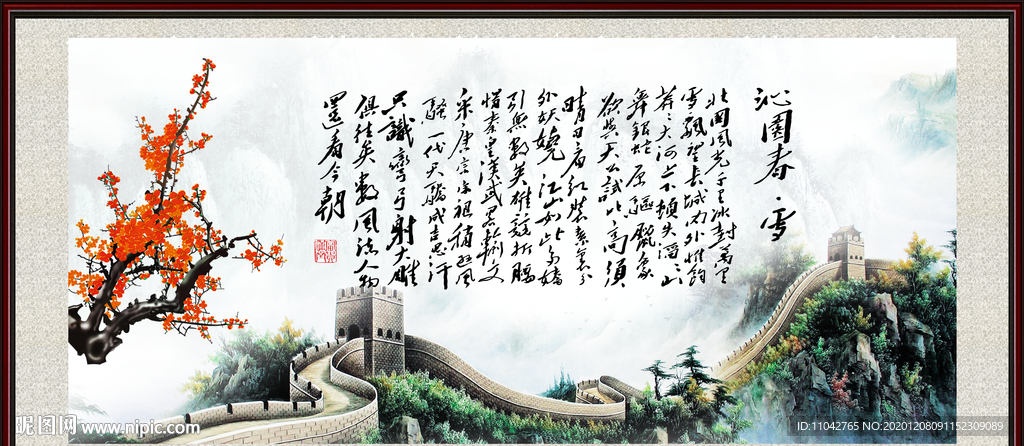 沁園春·雪
北国風光千里冰封萬里
雪飄望長城内外惟餘
莽々大河上下頓失滔々山
舞銀蛇原驅蠟象
欲与天公試比高須
晴日看红装素裹分
外妖嬈江山如此多嬌
引無數英雄競折腰
惜秦皇漢武略輸文
采唐宗宋祖稍遜風
騷一代天驕成吉思汗
只識彎弓射大雕
俱往矣數風流人物
還看今朝
昵图网 www.nipic.com
ID:11042765 NO:20201208091152309089